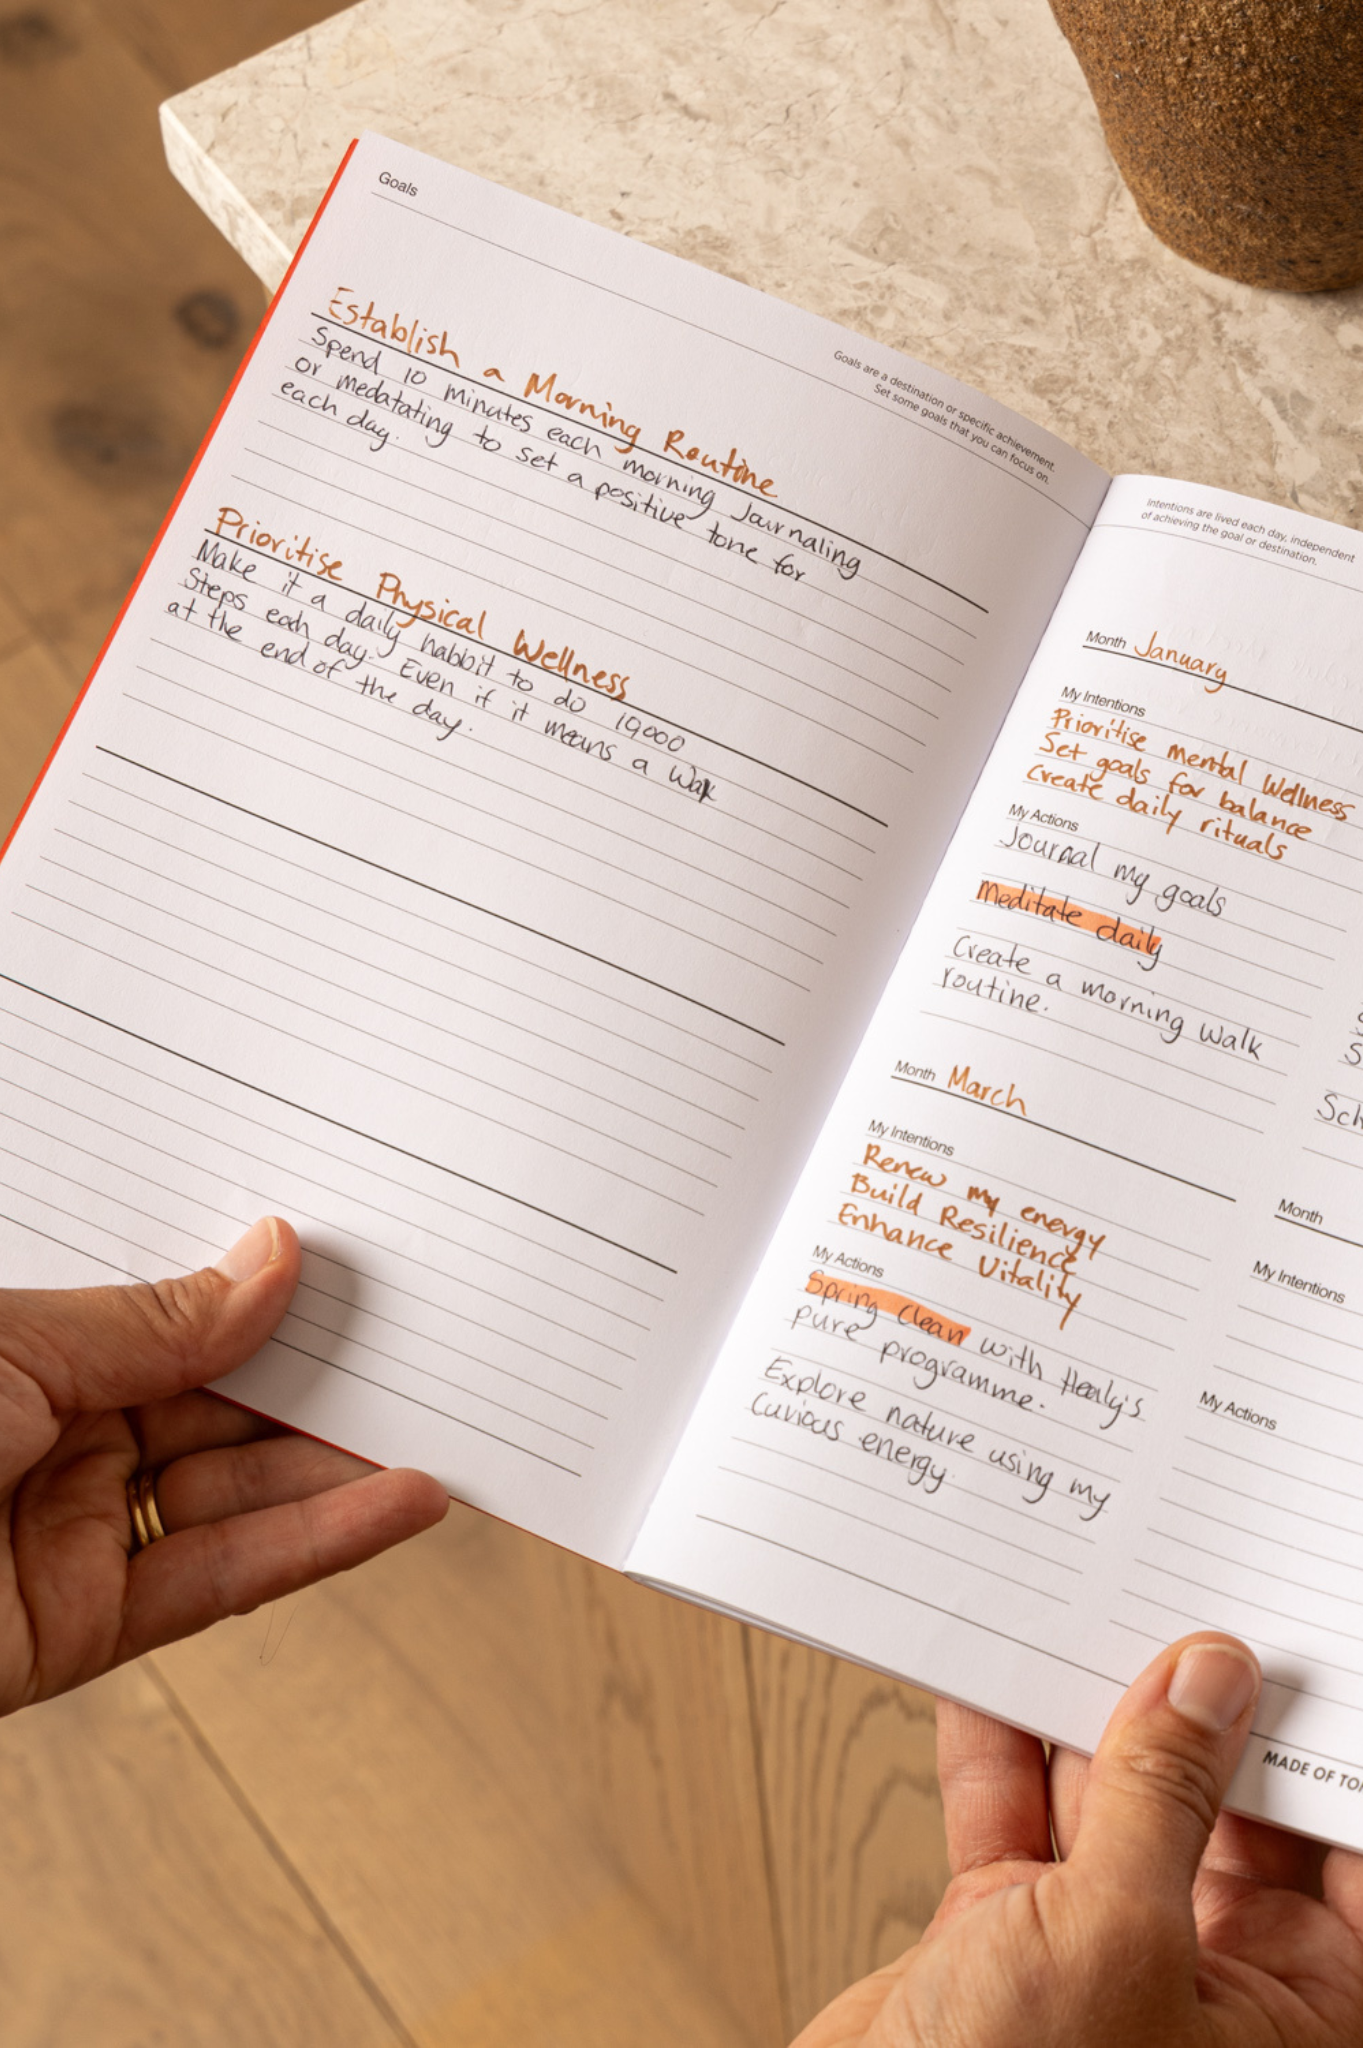 Goals
Goals are a destination or specific achievement.
Set some goals that you can focus on.
Establish a Morning Routine
Spend 10 minutes each morning Journaling
or medatating to set a positive tone for
each day.
Prioritise Physical Wellness
Make it a daily habbit to do 10,000
Steps each day. Even if it means a Walk
at the end of the day.
Intentions are lived each day, independent
of achieving the goal or destination.
Month January
My Intentions
Prioritise mental Wellness
Set goals for balance
Create daily rituals
My Actions
Journal my goals
Meditate daily
Create a morning Walk
routine.
Month March
My Intentions
Renew my energy
Build Resilience
Enhance Vitality
My Actions
Spring Clean with Healy's
pure programme.
Explore nature using my
Curious energy.
Month
My Intentions
My Actions
MADE OF